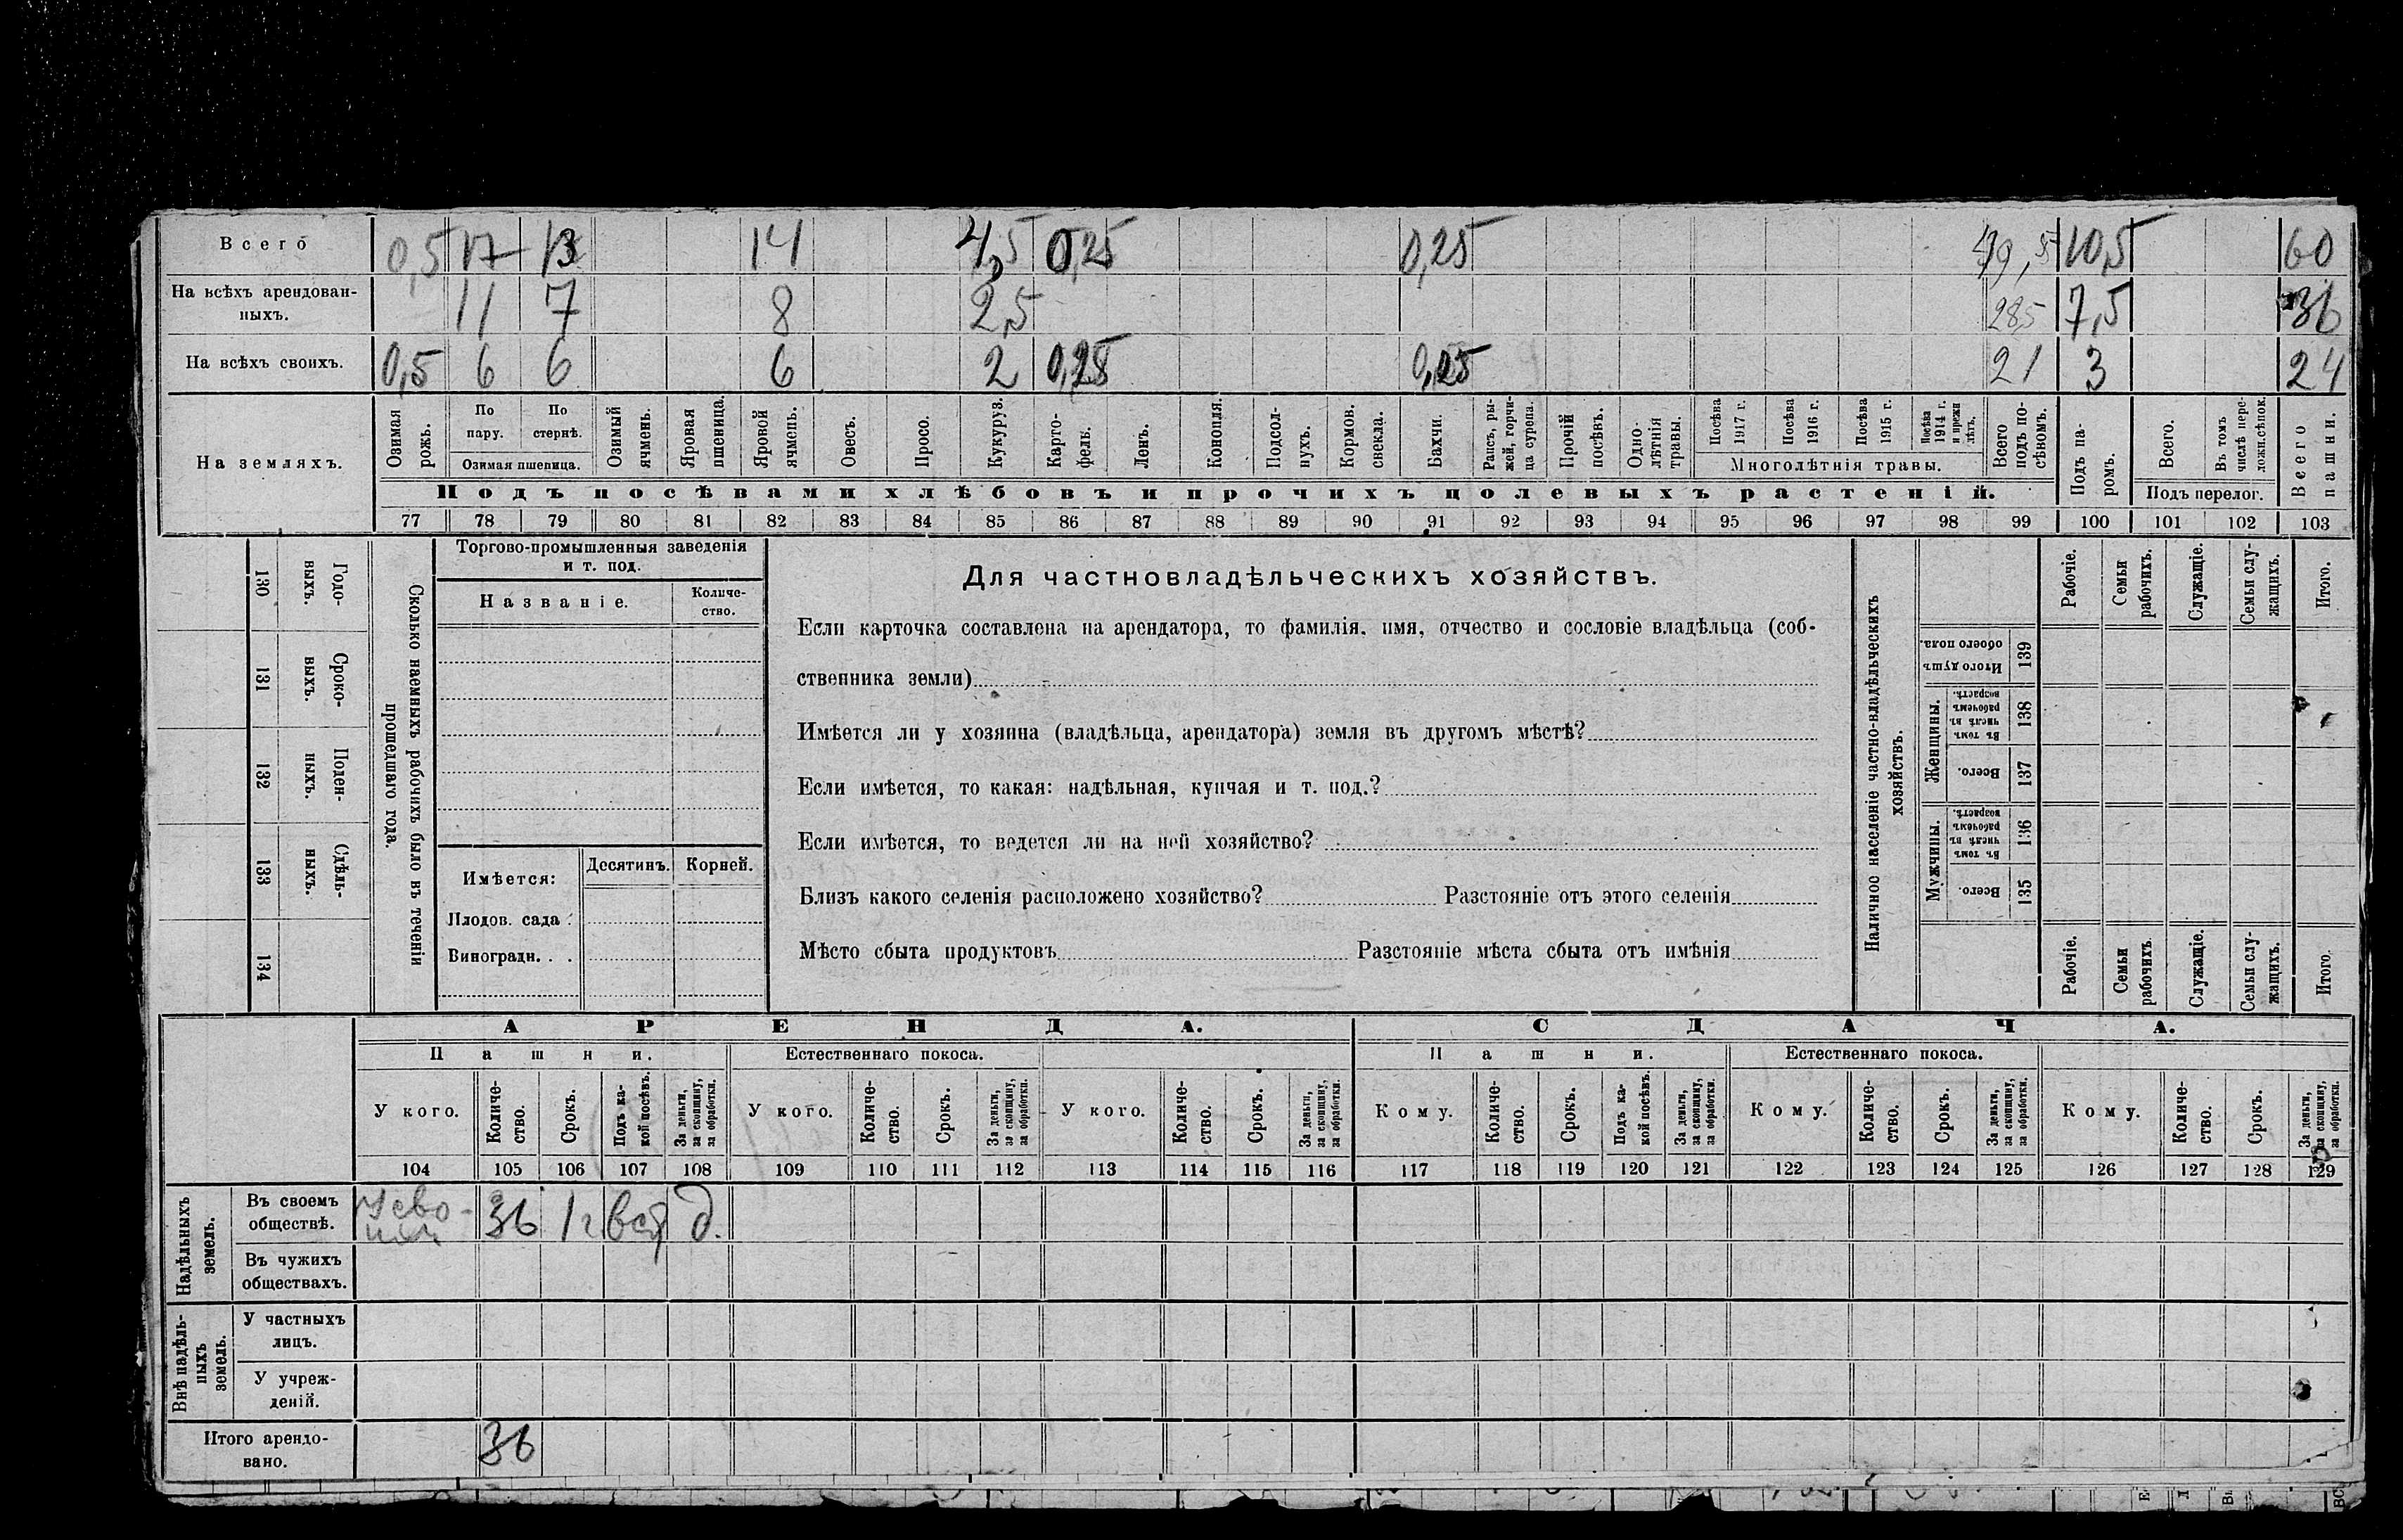 Всего 0,5 17 13 14 4,5 0,25 0,25 49,5 10,5 60
На всѣхъ арендован-
ныхъ. 11 7 8 2,5 28,5 7,5 36
На всѣхъ своихъ. 0,5 6 6 6 2 0,25 0,25 21 3 24
На земляхъ.
Озимая рожь.
По пару.
По стернѣ.
Озимая пшеница.
Озимый ячмень.
Яровая пшеница.
Яровой ячмень.
Овесъ.
Просо.
Кукуруз.
Карто-
фель.
Ленъ.
Конопля.
Подсол-
нухъ.
Кормов. свекла.
Бахчи.
Рапсъ, ры-
жей, горчи-
ца сурепа.
Прочій посѣвъ.
Одно-
лѣтнія травы.
Посѣва 1917 г.
Посѣва 1916 г.
Посѣва 1915 г.
Посѣва 1914 г. и прежн лѣтъ.
Многолѣтнія травы.
Всего подъ по-
сѣвомъ.
Подъ па-
ромъ.
Всего.
Въ томъ числѣ пере-
ложн.сѣнок.
Подъ перелог.
Всего пашни.
Подъ посѣвами хлѣбовъ и прочихъ полевыхъ растеній.
77 78 79 80 81 82 83 84 85 86 87 88 89 90 91 92 93 94 95 96 97 98 99 100 101 102 103
130 Годо-
выхъ.
131 Сроко-
выхъ.
132 Поден-
ныхъ.
133 Сдѣль-
ныхъ.
134
Сколько наемныхъ рабочихъ было въ теченіи
прошедшаго года.
Торгово-промышленныя заведенія
и т. под.
Названіе.
Количе-
ство.
Имѣется:
Десятинъ.
Корней.
Плодов. сада .
Виноградн. . .
Для частновладѣльческихъ хозяйствъ.
Если карточка составлена на арендатора, то фамилія, имя, отчество и сословіе владѣльца (соб-
ственника земли)
Имѣется ли у хозяина (владѣльца, арендатора) земля въ другомъ мѣстѣ?
Если имѣется, то какая: надѣльная, купчая и т. под.?
Если имѣется, то ведется ли на ней хозяйство?
Близъ какого селенія расположено хозяйство? Разстояніе отъ этого селенія
Мѣсто сбыта продуктовъ Разстояніе мѣста сбыта отъ имѣнія
Наличное населеніе частно-владѣльческихъ
хозяйствъ.
Рабочіе.
Семьи рабочихъ.
Служащіе.
Семьи слу-
жащихъ.
Итого.
Итого душъ обоего пола. 139
Женщины.
Въ томъ числѣ въ рабочемъ возрастѣ. 138
Всего. 137
Мужчины.
Въ томъ числѣ въ рабочемъ возрастѣ. 136
Всего. 135
Рабочіе.
Семьи рабочихъ.
Служащіе.
Семьи слу-
жащихъ.
Итого.
АРЕНДА. СДАЧА.
Пашни. Естественнаго покоса. Пашни. Естественнаго покоса.
У кого.
Количе-
ство.
Срокъ.
Подъ ка-
кой посѣвъ.
За деньги,
за скопщину,
за обработки.
У кого.
Количе-
ство.
Срокъ.
За деньги,
за скопщину,
за обработки.
У кого.
Количе-
ство.
Срокъ.
За деньги,
за скопщину,
за обработки.
Кому.
Количе-
ство.
Срокъ.
Подъ ка-
кой посѣвъ.
За деньги,
за скопщину,
за обработки.
Кому.
Количе-
ство.
Срокъ.
За деньги,
за скопщину,
за обработки.
Кому.
Количе-
ство.
Срокъ.
За деньги,
за скопщину,
за обработки.
104 105 106 107 108 109 110 111 112 113 114 115 116 117 118 119 120 121 122 123 124 125 126 127 128 129
Надѣльныхъ
земель.
Въ своемъ
обществѣ. 36 1г д.
Въ чужихъ
обществахъ.
Внѣ надѣль-
ныхъ
земель.
У частныхъ
лицъ.
У учреж-
деній.
Итого арендо-
вано. 36